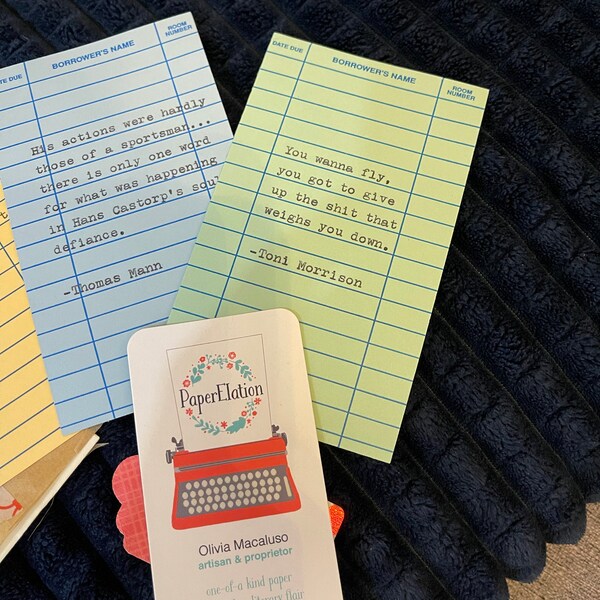 DATE DUE
BORROWER'S NAME
ROOM
NUMBER
His actions were hardly
those of a sportsman...
there is only one word
for what was happening
in Hans Castorp's soul
defiance.
-Thomas Mann
DATE DUE
BORROWER'S NAME
ROOM
NUMBER
You wanna fly,
you got to give
up the shit that
weighs you down.
-Toni Morrison
PaperElation
Olivia Macaluso
artisan & proprietor
one-of-a kind paper
literary flair